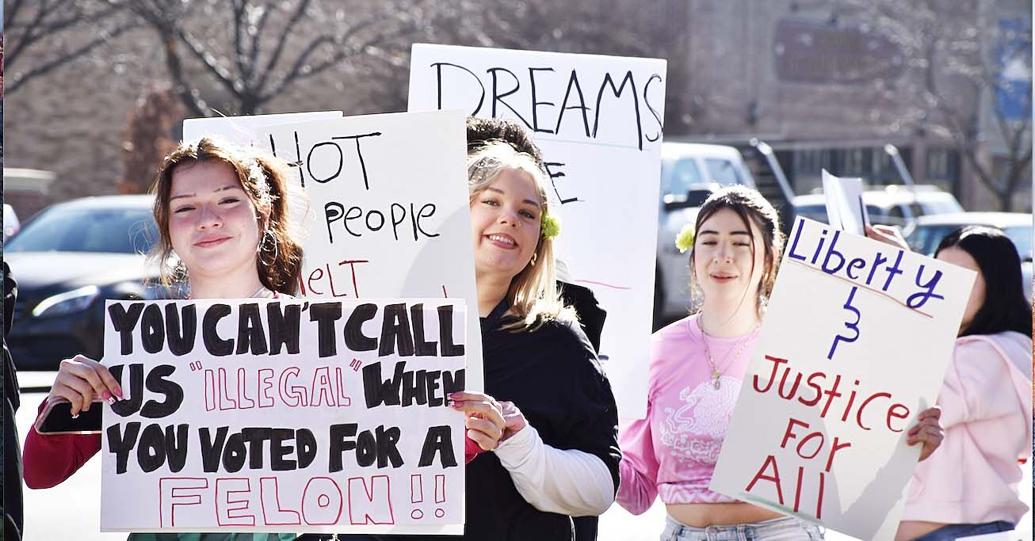 DREAMS
HOT
PEOPLE
MELT
YOU CAN'T CALL
US "ILLEGAL" WHEN
YOU VOTED FOR A
FELON!!
Liberty
&
Justice
For
All